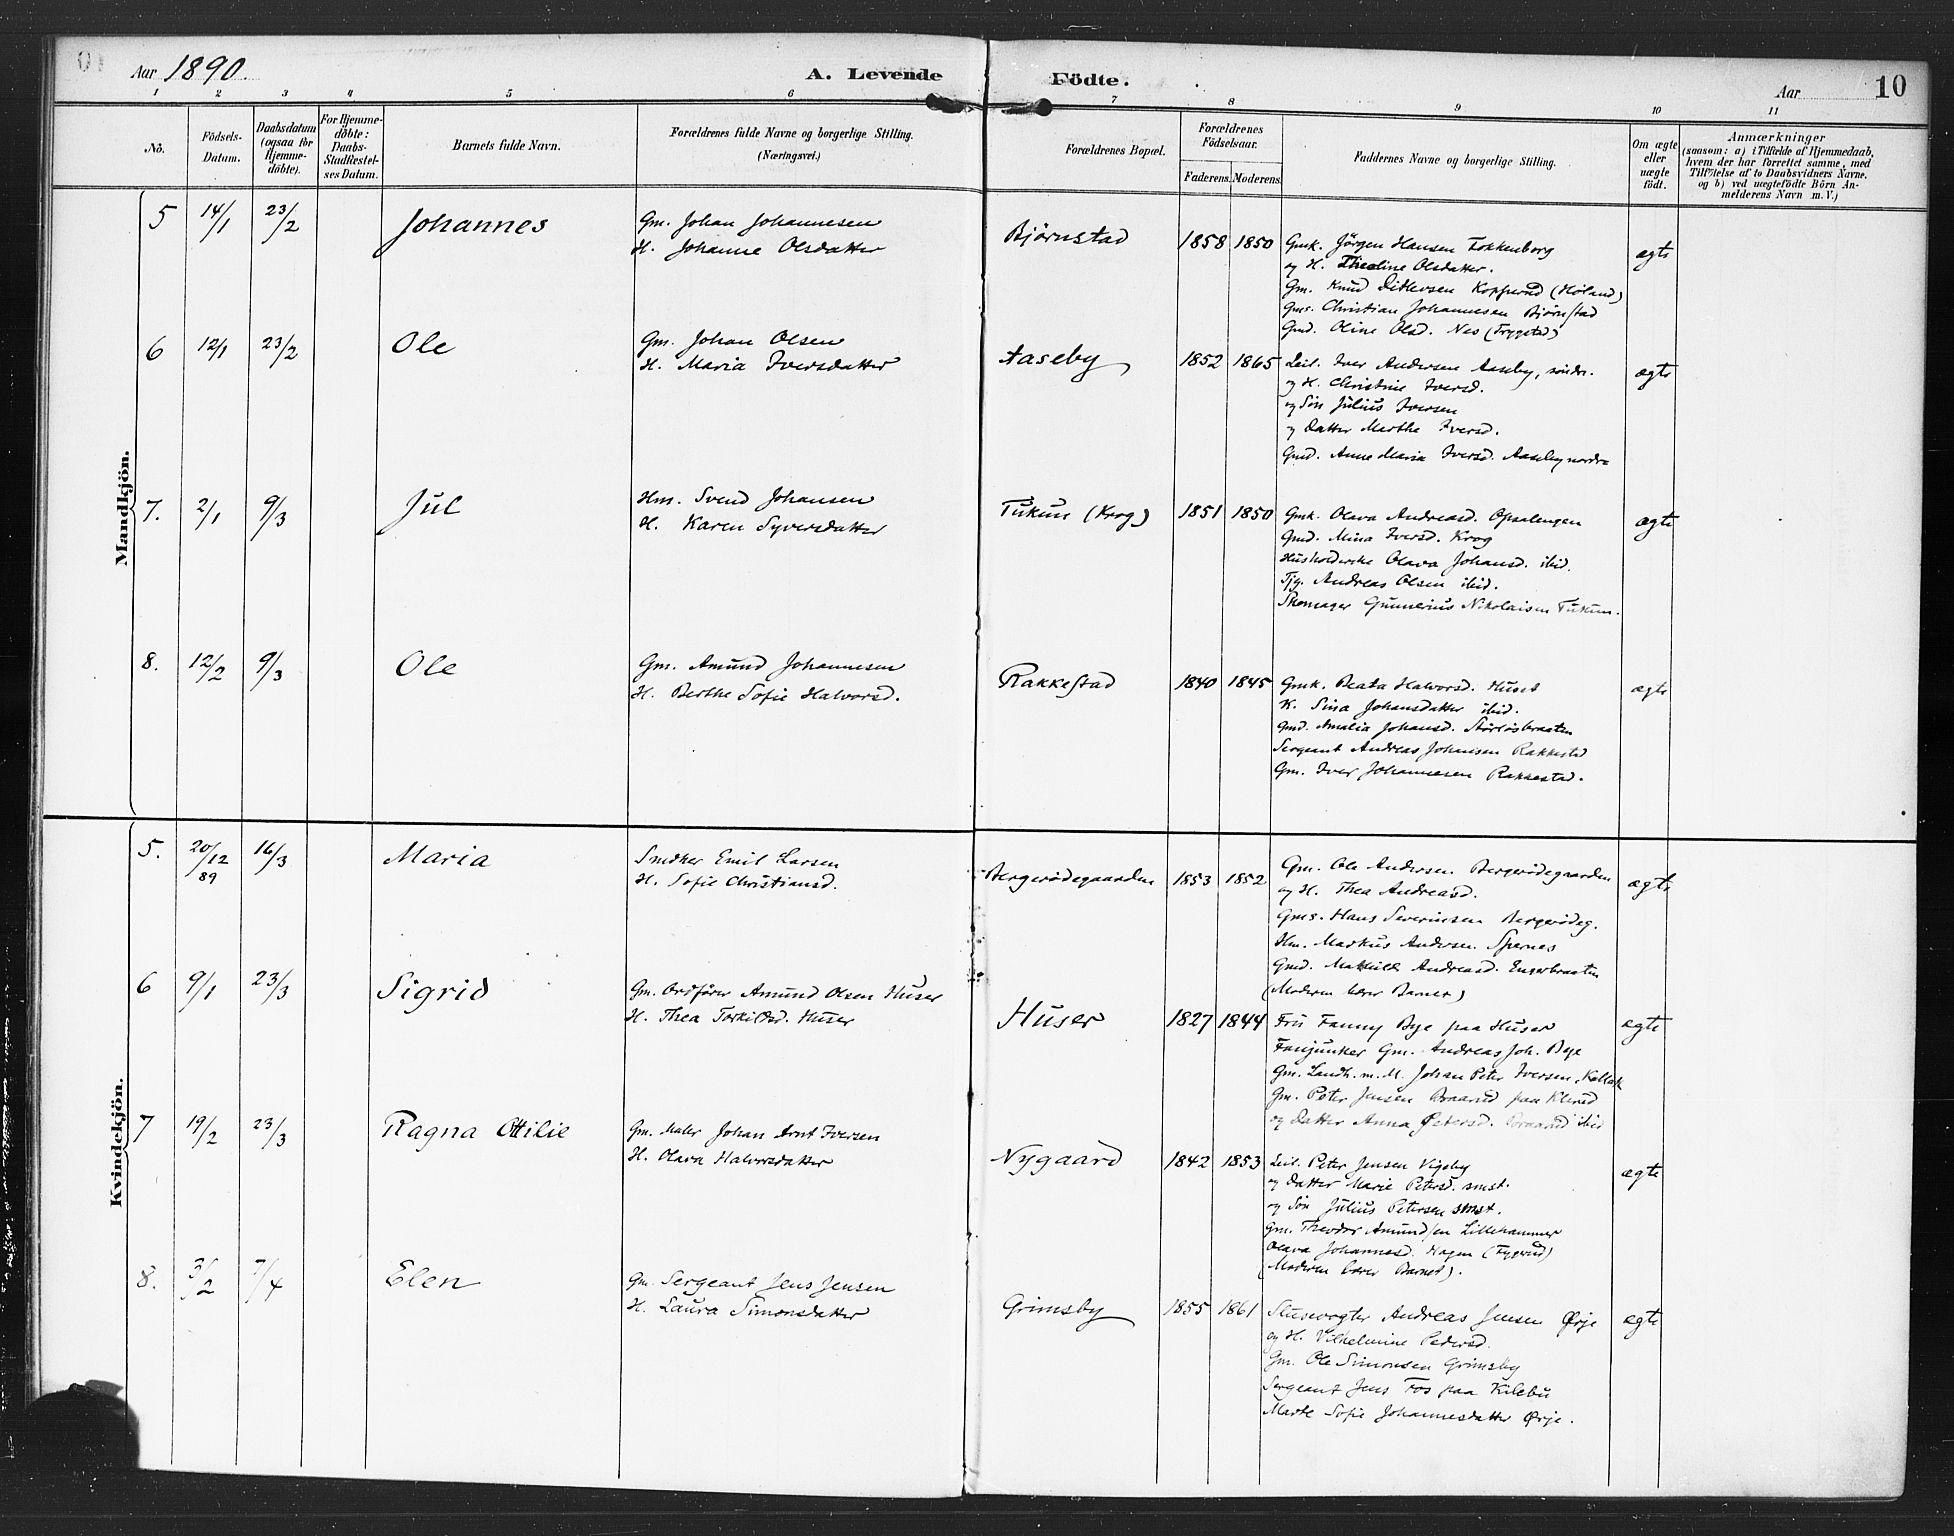 Aar 1890. A. Levende Födte. Aar 10
1 2 3 4 5 6 7 8 9 10 11
No.
Födsels-Datum.
Daabsdatum (ogsaa for Hjemme-döbte).
For Hjemme-döbte: Daabs-Stadfæstel-ses Datum.
Barnets fulde Navn.
Forældrenes fulde Navne og borgerlige Stilling.
(Næringsvei.)
Forældrenes Bopæl.
Forældrenes Födselsaar.
Faderens. Moderens.
Faddernes Navne og borgerlige Stilling.
Om ægte eller uægte födt.
Anmærkninger
(saasom: a) i Tilfælde af Hjemmedaab,
hvem der har forrettet samme, med
Tilföielse af to Daabsvidners Navne.
og b) ved uægtefödte Börn An-
melderens Navn m. V.)
Mandkjön.
5 14/1 23/2 Johannes Gm. Johan Johannesen Bjørnstad 1858 1850 ægte
H. Johanne Olsdatter
Gmk. Jörgen Hansen Fokkenborg
og H. Theoline Olsdatter.
Gm. Knud Ditlevsen Kopperud (Høland)
Gms. Christian Johannesen Bjørnstad
Gmd. Oline Olsd. Nes (Trygstad)
6 12/1 23/2 Ole Gm. Johan Olsen Aaseby 1852 1865 ægte
H. Maria Iversdatter
Leil. Iver Andersen Aaseby, söndr.
og H. Christine Iversd.
og Sön Julius Iversen
og Datter Marthe Iversd.
Gmd. Anne Maria Iversd. Aaseby nordre
7. 2/1 9/3 Jul Hm. Svend Johansen Tukun (Krog) 1851 1850 ægte
H. Karen Syversdatter
Gmk. Olava Andreasd. Opsalengen
Gmd. Mina Iversd. Krog
Husholderske Olava Johansd. ibid.
Tjg. Andreas Olsen ibid.
Skomager Gunnerius Nikolaisen Tukun.
8. 12/2 9/3 Ole Gm. Amund Johannesen Rakkestad 1840 1845 ægte
H. Berthe Sofie Halvorsd.
Gmk. Beata Halvorsd. Huset
K. Sina Johansdatter ibid.
Gmd. Amalia Johansd. Störlösbraaten
Sergeant Andreas Johansen Rakkestad
Gm. Iver Johannesen Rakkestad.
Kvindekjön.
5. 20/12 89 16/3 Maria Snedker Emil Larsen Bergerødegaarden 1853 1852 ægte
H. Sofie Christiansd.
Gm. Ole Andersen Bergerødegaarden
og H. Thea Andreasd.
Gms. Hans Severinsen Bergerödeg.
Hm. Markus Andersen Spernes
Gmd. Mathilde Andreasd. Engerbraaten
(Moderen bærer Barnet)
6 9/1 23/3 Sigrid Gm. Ordförer Amund Olsen Huser Huser 1827 1844 ægte
H. Thea Torkildsd. Huser
Fru Fanny Bye paa Huser
Fanjunker Gm. Andreas Joh. Bye
Gm. Landh. m. M. Johan Peter Iversen Kallak
Gm. Peter Jensen Braarud paa Klerud
og Datter Anna Petersd. Braarud ibid
7 19/2 23/3 Ragna Ottilie Gm. Maler Johan Arnt Iversen Nygaard 1842 1853 ægte
H. Olava Halvorsdatter
Leil. Peter Jensen Vigeby
og Datter Marie Petersd. smst.
og Sön Julius Petersen smst.
Gm. Theodor Amundsen Lillehammer
Olava Johannesd. Hagen
(Moderen bærer Barnet).
8. 3/2 7/4 Elen Gm. Sergeant Jens Jensen Grimsby 1855 1861 ægte
H. Laura Simonsdatter
Slusevogter Andreas Jensen Ørje
og H. Vilhelmine Pedersd.
Gm. Ole Simonsen Grimsby
Sergeant Jens Fos paa Kilebu
Marte Sofie Johannesdatter Ørje.